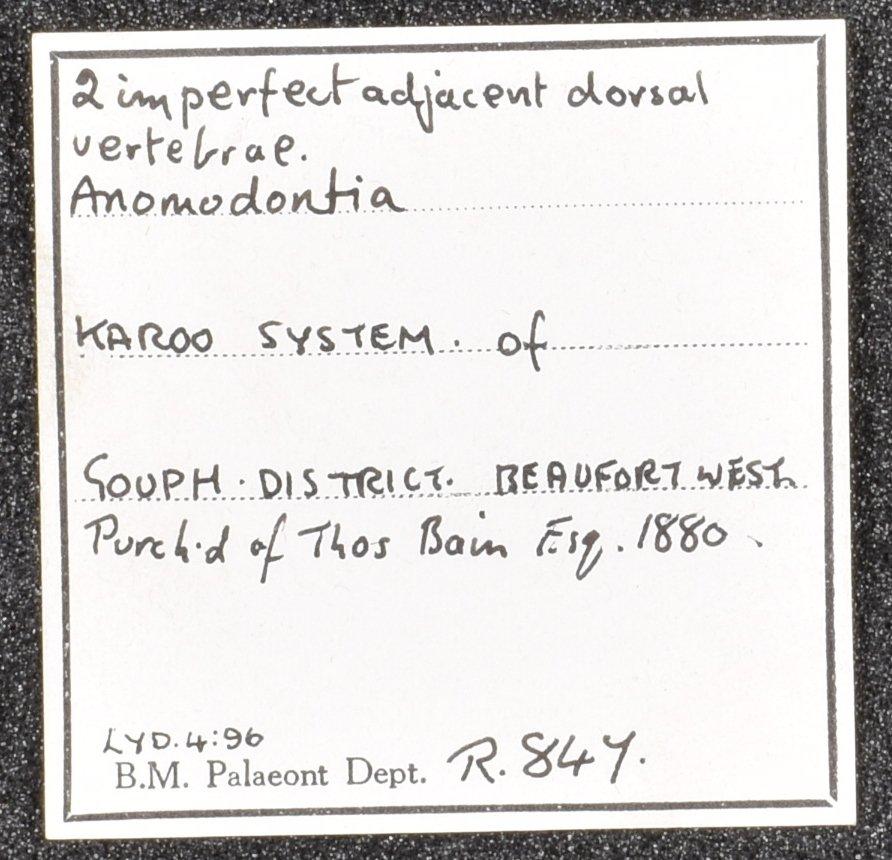 2 imperfect adjacent dorsal
vertebrae.
Anomodontia
KAROO SYSTEM. of
GOUPH. DISTRICT. BEAUFORT WEST.
Purch.d of Thos Bain Esq. 1880.
LYD. 4:96
B.M. Palaeont Dept. R. 847.